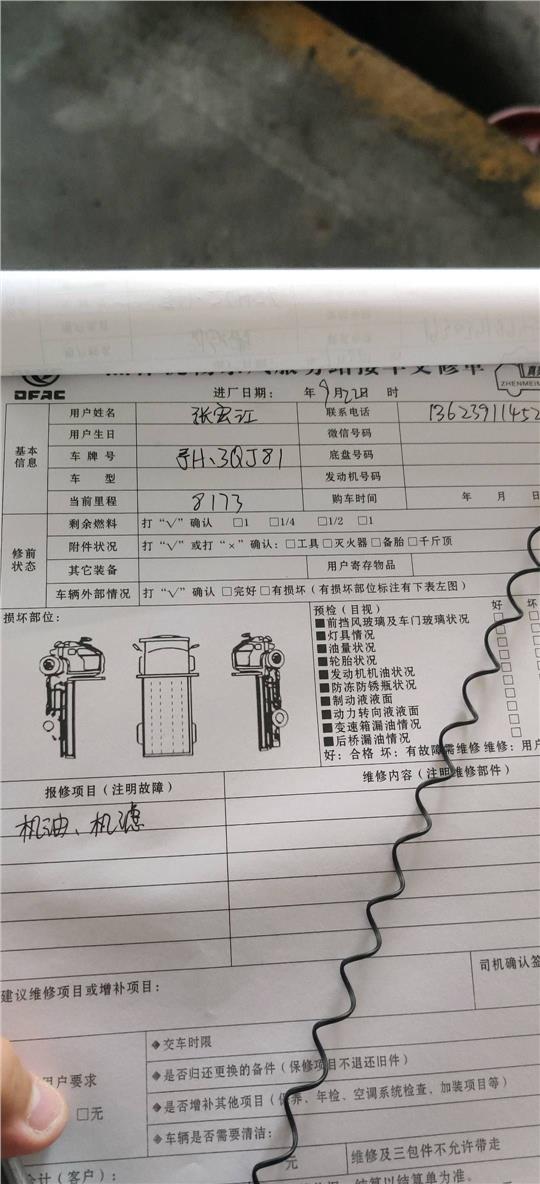 DFAC
服务站接车交修单
ZHENMEIM
进厂日期： 年 9月22日 时
用户姓名 张宏江 联系电话 13623911452
用户生日 微信号码
基本信息 车牌号 予H、3QJ81 底盘号码
车 型 发动机号码
当前里程 8173 购车时间 年 月 日
剩余燃料 打“√”确认 □1 □1/4 □1/2 □1
修前状态 附件状况 打“√”或打“×”确认：□工具□灭火器□备胎□千斤顶
其它装备 用户寄存物品
车辆外部情况 打“√”确认 □完好□有损坏（有损坏部位标注有下表左图）
损坏部位： 预检（目视） 好 坏
■前挡风玻璃及车门玻璃状况 □
■灯具情况 □
■油量状况 □
■轮胎状况 □
■发动机机油状况 □
■防冻防锈瓶状况 □
■制动液液面 □
■动力转向液液面 □
■变速箱漏油情况 □
■后桥漏油情况 □
好：合格 坏：有故障需维修 维修：用户
报修项目（注明故障） 维修内容（注明维修部件）
机油、机滤
建议维修项目或增补项目： 司机确认签
◆交车时限
用户要求 ◆是否归还更换的备件（保修项目不退还旧件）
□无 ◆是否增补其他项目（保养、年检、空调系统检查、加装项目等）
◆车辆是否需要清洁：
合计（客户）： 元 维修及三包件不允许带走
结算以结算单为准。